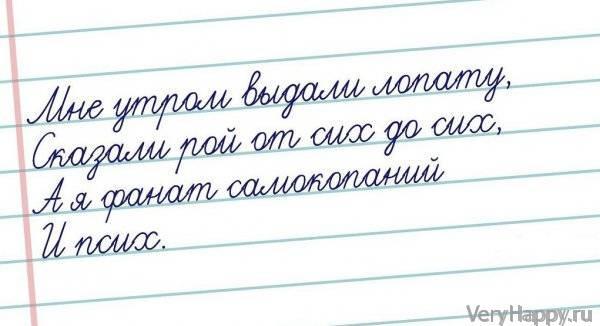 Мне утром выдали лопату,
Сказали рой от сих до сих,
А я фанат самокопаний
И псих.
VeryHappy.ru